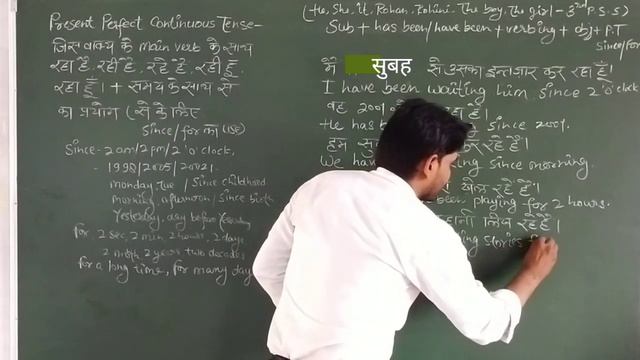 Present Perfect Continuous Tense-
जिस वाक्य के main verb के साथ
रहा है, रही है, रहे हैं, रही हूँ,
रहा हूँ। + समय के साथ से
का प्रयोग (से के लिए
Since/for का USE)
Since-2am/2pm/2'o'clock,
- 1998/2005/2021.
monday, tue / Since childhood
morning, afternoon / Since birth
Yesterday, day before yesterday
for, 2 sec, 2 min, 2 hours, 2 days
2 month 2 years two decades
for a long time, for many day
(He, She, it, Rohan, Rohini, The boy, The girl - 3rd P.S.S)
Sub + has been/have been + verbing + obj + P.T
Since/for
मैं सुबह से उसका इन्तजार कर रहा हूँ।
I have been waiting him since 2'o'clock
वह 2001 रहा है।
He has be since 2001.
हम सु कर रहे हैं।
We have ing since morning.
खेल रहे हैं।
been playing for 2 hours.
कहानी लिख रहे हैं।
ing stories